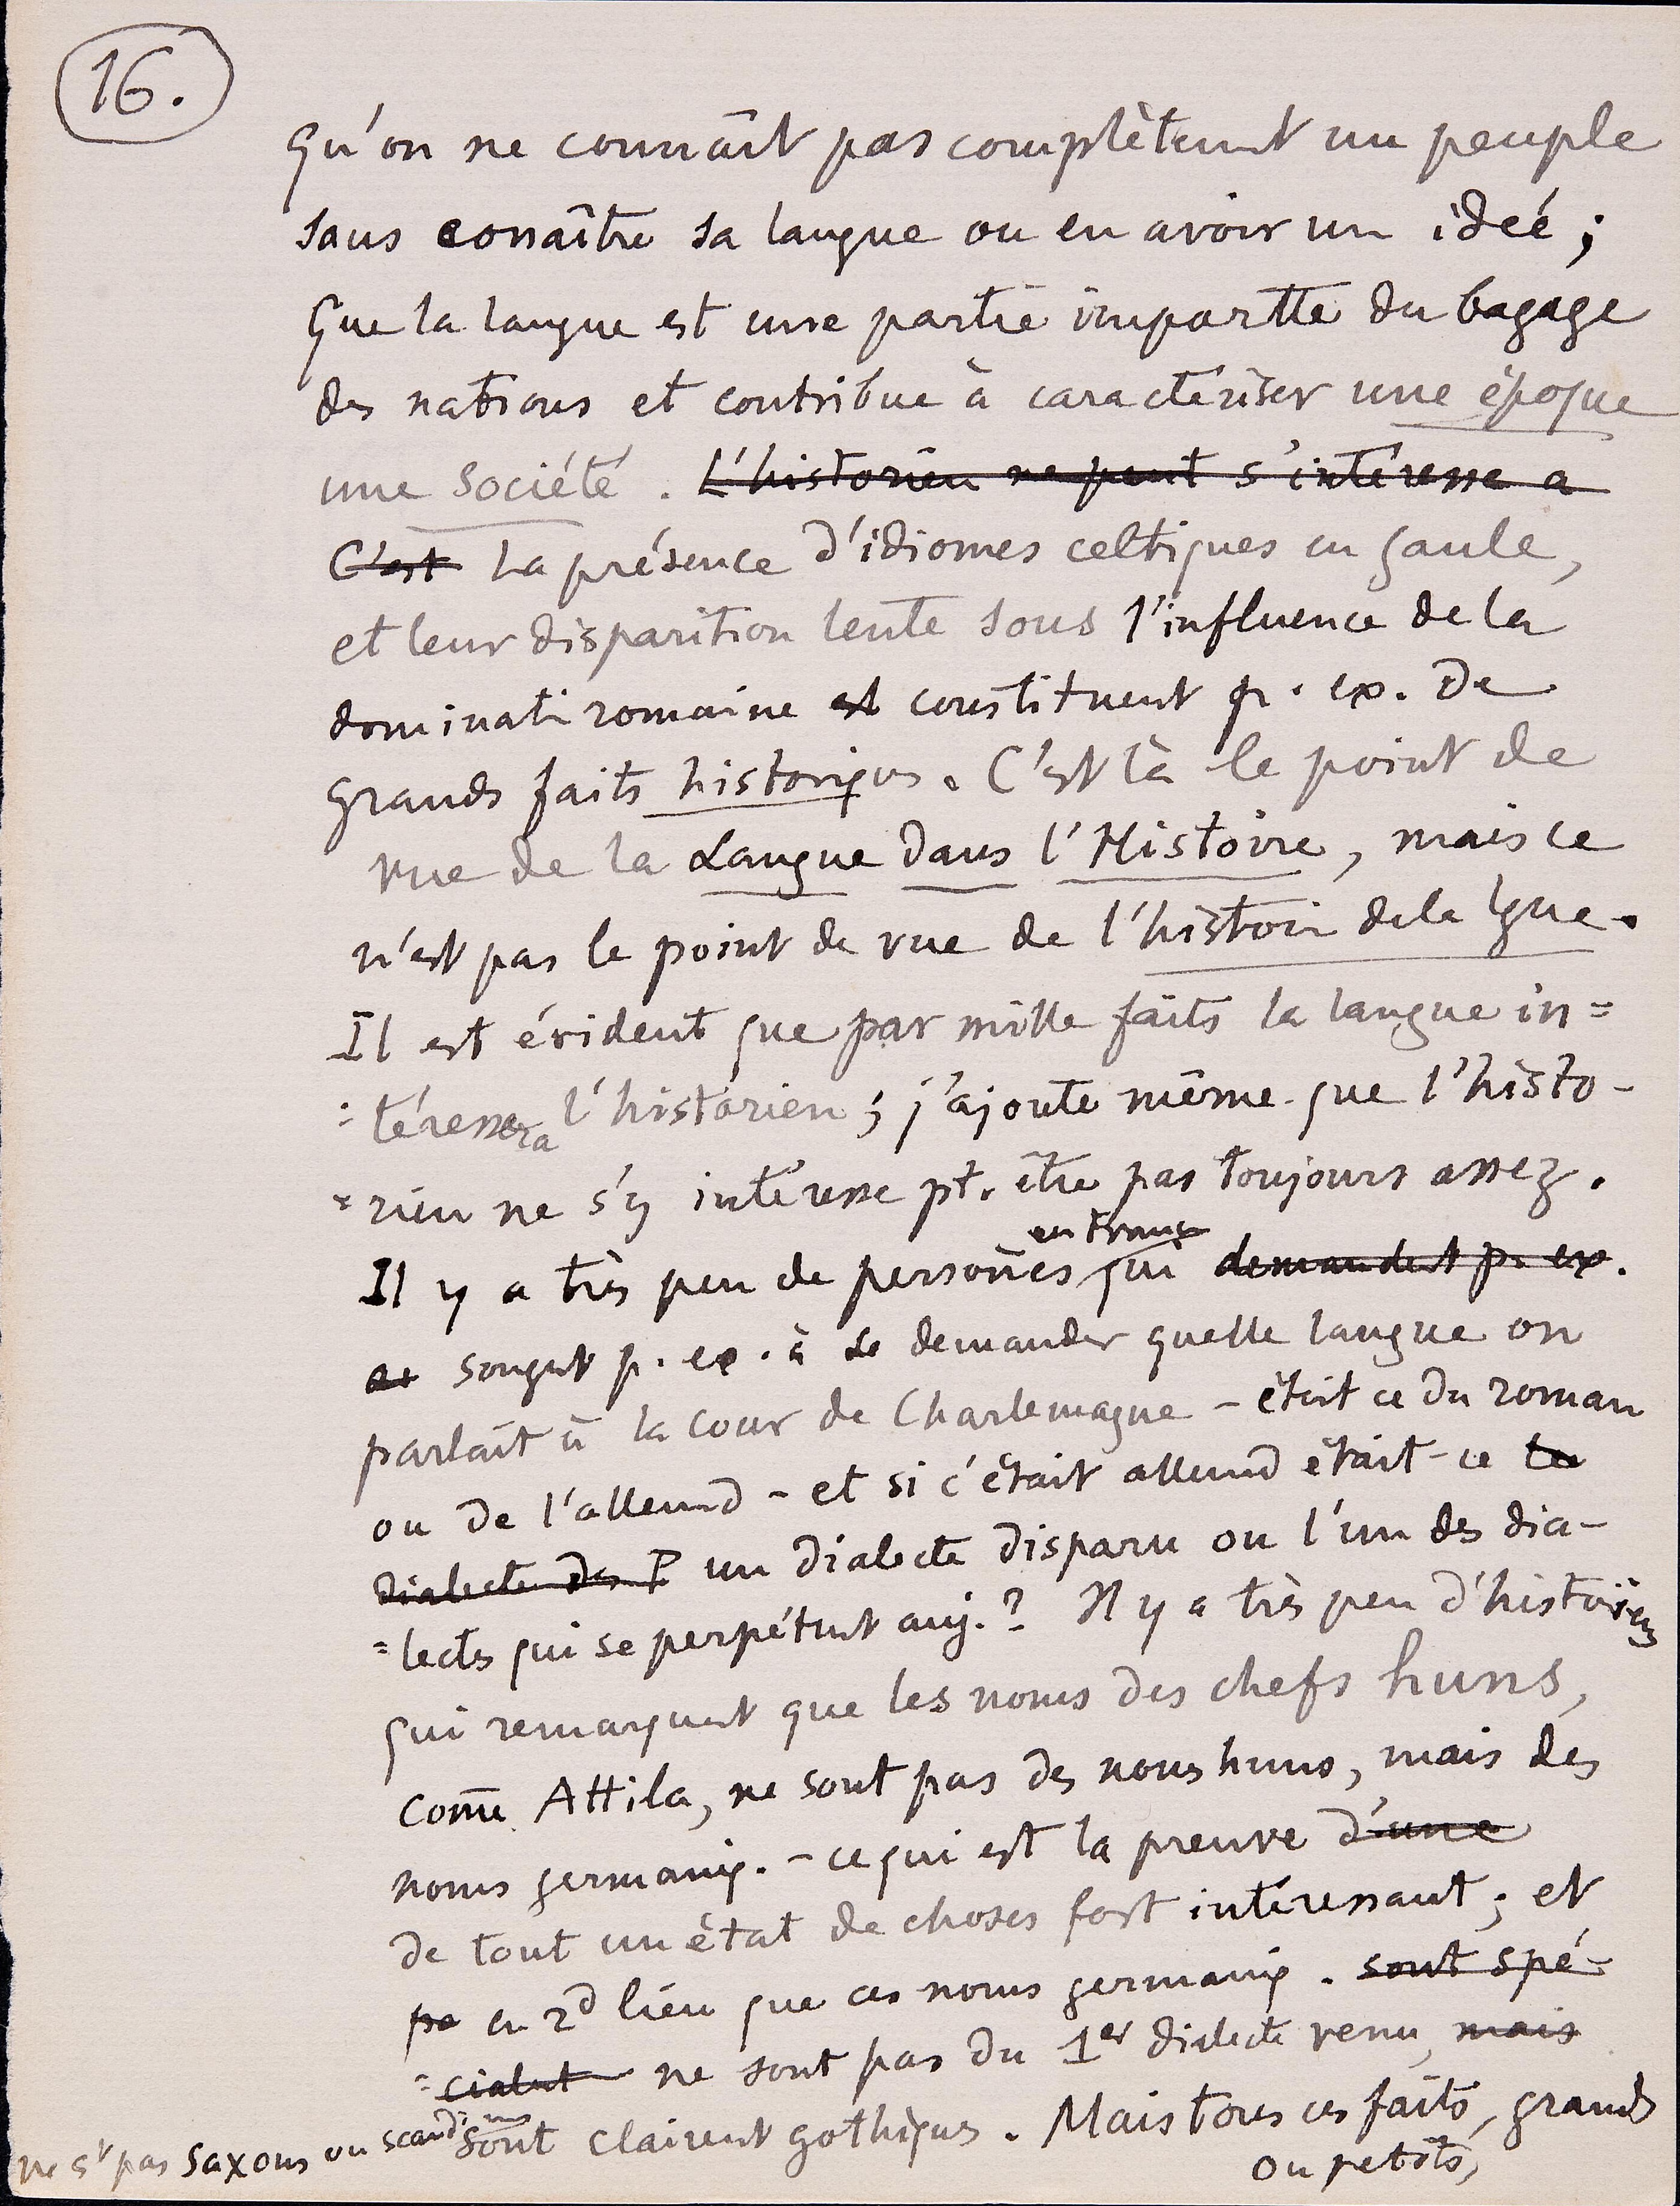 16.
qu'on ne connaît pas complètemt un peuple
sans connaître sa langue ou en avoir un idée ;
que la langue est une partie importte du bagage
des nations et contribue à caractériser une époque
une société . L'historien ne peut s'intéresse a
C'est La présence d'idiomes celtiques en Gaule,
et leur disparition lente sous l'influence de la
dominati romaine est constituent p. ex. de
grands faits historiques. C'est là le point de
vue de la Langue dans l'Histoire, mais ce
n'est pas le point de vue de l'histoire de la lgue.
Il est évident que par mille faits la langue in=
=téressera l'historien ; j'ajoute même que l'histo-
=rien ne s'y intéresse pt. être pas toujours assez.
en France
Il y a très peu de persoñes qui demandent p. ex.
se songent p. ex. à se demander quelle langue on
parlait à la cour de Charlemagne - était ce du roman
ou de l'allemd - et si c'était allemd était-ce le
dialecte des F un dialecte disparu ou l'un des dia-
=lectes qui se perpétuent auj.? Il y a très peu d'historiens
qui remarquent que les noms des chefs huns,
com̃e Attila, ne sont pas des noms huns, mais des
noms germaniq. - ce qui est la preuve d'une
de tout un état de choses fort intéressant ; et
pa en 2d lieu que ces noms germaniq. sont spé-
=cialent ne sont pas du 1er dialecte venu, mais
ne st pas saxons ou scandins sont clairent gothiques. Mais tous ces faits, grands
ou petits,